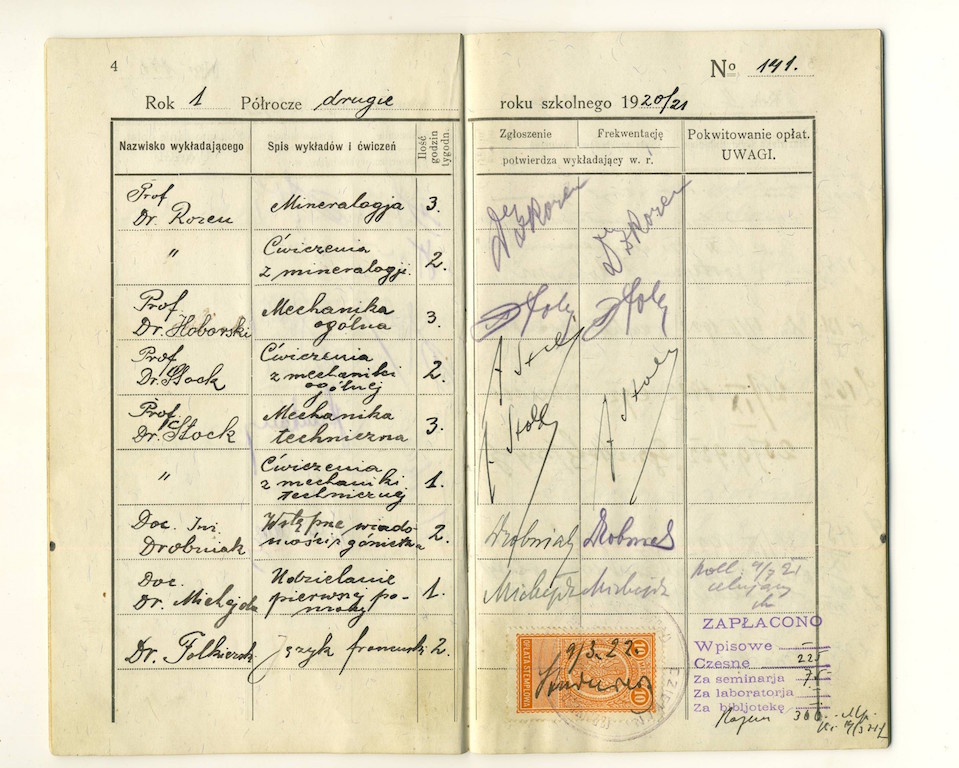 4
Nº 141.
Rok 1 Półrocze drugie roku szkolnego 1920/21
Nazwisko wykładającego
Spis wykładów i ćwiczeń
Ilość godzin tygodn.
Zgłoszenie
Frekwentację
potwierdza wykładający w. r.
Pokwitowanie opłat.
UWAGI.
Prof
Dr. Rozen
Mineralogja
3.
Dr Z Rozen
Dr Z Rozen
"
Ćwiczenia
z mineralogji
2.
Prof.
Dr. Hoborski
Mechanika
ogólna
3.
Prof
Dr. Stock
Ćwiczenia
z mechaniki
ogólnej
2.
Prof.
Dr. Stock
Mechanika
techniczna
3.
"
Ćwiczenia
z mechaniki
technicznej
1.
Doc. Inż.
Drobniak
Wstępne wiado-
mości z górnictwa
2.
Drobniak
Drobniak
Doc.
Dr. Michejda
Udzielanie
pierwszej po-
mocy
1.
Michejda
Michejda
Koll. 9/7 21
celujący
Dr. Folkierski
Język francuski
2.
OPŁATA STEMPLOWA
10
10
9/3.22.
ZAPŁACONO
Wpisowe
Czesne 225
Za seminarja 75
Za laboratorja
Za bibljotekę
Razem 300